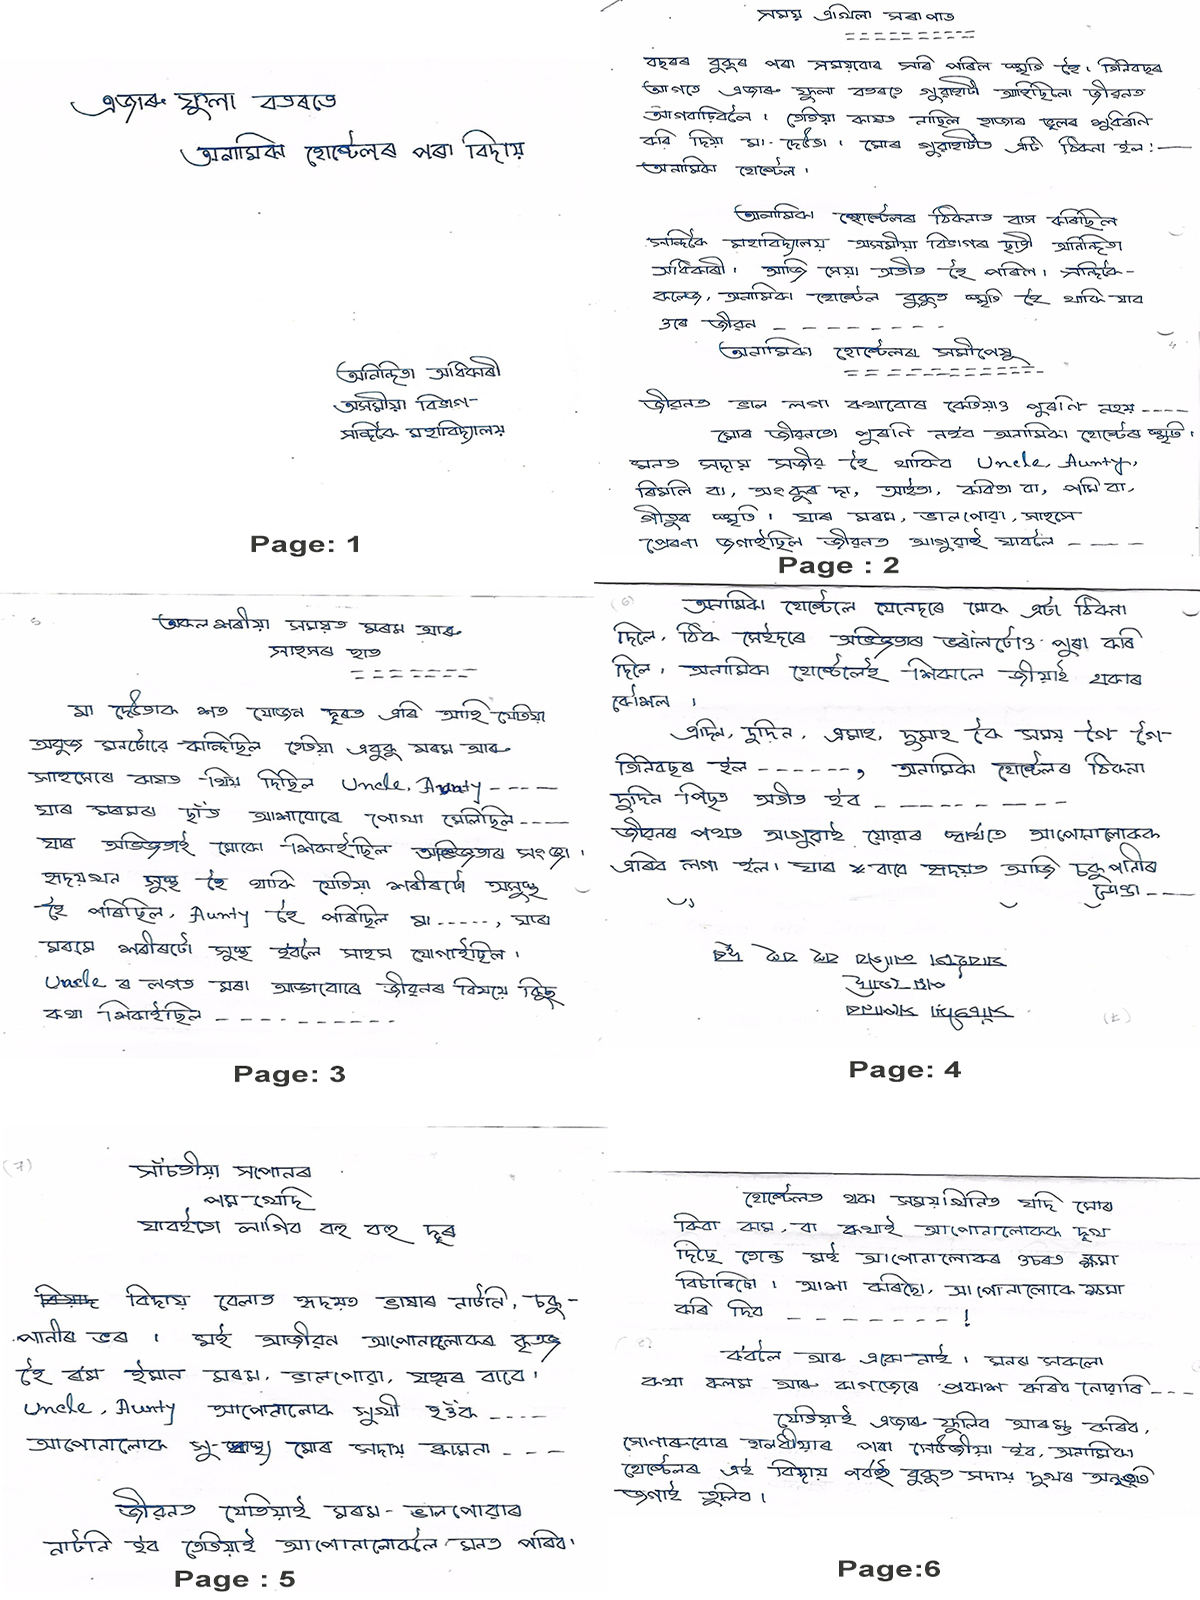 এজাৰু ফুলা বতৰতে
অনামিকা হোষ্টেলৰ পৰা বিদায়
অনিন্দিতা অধিকাৰী
অসমীয়া বিভাগ
সন্দিকৈ মহাবিদ্যালয়
Page: 1
সময় এখিলা সৰাপাত
বছৰৰ বুকুৰ পৰা সময়বোৰ সৰি পৰিল স্মৃতি হৈ। তিনিবছৰ
আগতে এজাৰু ফুলা বতৰতে গুৱাহাটী আহিছিলো জীৱনত
আগবাঢ়িবলৈ। তেতিয়া কাষত নাছিল হাজাৰ ভুলৰ শুধৰণি
কৰি দিয়া মা-দেউতা। মোৰ গুৱাহাটীত এটি ঠিকনা হ'ল:—
অনামিকা হোষ্টেল।
অনামিকা হোষ্টেলৰ ঠিকনাত বাস কৰিছিল
সন্দিকৈ মহাবিদ্যালয় অসমীয়া বিভাগৰ ছাত্ৰী অনিন্দিতা
অধিকাৰী। আজি সেয়া অতীত হৈ পৰিল। সন্দিকৈ-
কলেজ, অনামিকা হোষ্টেল বুকুত স্মৃতি হৈ থাকি যাব
ওৰে জীৱন - - - - - - - -
অনামিকা হোষ্টেলৰ সমীপেষু
জীৱনত ভাল লগা কথাবোৰ কেতিয়াও পুৰণি নহয় ----
মোৰ জীৱনতো পুৰণি নহ'ব অনামিকা হোষ্টেৰ স্মৃতি।
মনত সদায় সজীৱ হৈ থাকিব Uncle, Aunty,
ৰিমলি বা, অংকুৰ দা, আইতা, কবিতা বা, পমি বা,
গীতুৰ স্মৃতি। যাৰ মৰম, ভালপোৱা, সাহসে
প্ৰেৰণা জগাইছিল জীৱনত আগুৱাই যাবলৈ - - - -
Page : 2
অকলশৰীয়া সময়ত মৰম আৰু
সাহসৰ হাত
মা দেউতাক শত যোজন দূৰত এৰি আহি যেতিয়া
অবুজ মনটোৱে কান্দিছিল তেতিয়া এবুকু মৰম আৰু
সাহসেৰে কাষত থিয় দিছিল Uncle, Aunty ----
যাৰ মৰমৰ ছাঁত আশাবোৰে পোখা মেলিছিল ----
যাৰ অভিজ্ঞতাই মোকো শিকাইছিল অভিজ্ঞতাৰ সংজ্ঞা।
হৃদয়খন সুস্থ হৈ থাকি যেতিয়া শৰীৰটো অসুস্থ
হৈ পৰিছিল, Aunty হৈ পৰিছিল মা -----, যাৰ
মৰমে শৰীৰটো সুস্থ হ'বলৈ সাহস যোগাইছিল।
Uncle ৰ লগত মৰা আড্ডাবোৰে জীৱনৰ বিষয়ে কিছু
কথা শিকাইছিল - - - - - - - - - -
Page: 3
অনামিকা হোষ্টেলে যেনেদৰে মোক এটা ঠিকনা
দিলে, ঠিক সেইদৰে অভিজ্ঞতাৰ ভৰাঁলটোও পুৰা কৰি
দিলে। অনামিকা হোষ্টেলেই শিকালে জীয়াই থকাৰ
কৌশল।
এদিন, দুদিন, এমাহ, দুমাহ কৈ সময় গৈ গৈ
তিনিবছৰ হ'ল ------, অনামিকা হোষ্টেলৰ ঠিকনা
দুদিন পিছত অতীত হ'ব - - - - - - - -
জীৱনৰ পথত আগুৱাই যোৱাৰ স্বাৰ্থতে আপোনালোকক
এৰিব লগা হ'ল। যাৰ বাবে হৃদয়ত আজি চকুপানীৰ
Page: 4
(7)
সাঁচতীয়া সপোনৰ
পম খেদি
যাবইতো লাগিব বহু বহু দূৰ
বিদায় বেলাত হৃদয়ত ভাষাৰ নাটনি, চকু-
পানীৰ ভৰ। মই আজীৱন আপোনালোকৰ কৃতজ্ঞ
হৈ ৰ'ম ইমান মৰম, ভালপোৱা, যত্নৰ বাবে।
Uncle, Aunty আপোনালোক সুখী হওঁক ----
আপোনালোক সু-স্বাস্থ্য মোৰ সদায় কামনা - - -
জীৱনত যেতিয়াই মৰম-ভালপোৱাৰ
নাটনি হ'ব তেতিয়াই আপোনালোকলৈ মনত পৰিব।
Page : 5
হোষ্টেলত থকা সময়খিনিত যদি মোৰ
কিবা কাম, বা কথাই আপোনালোকক দুখ
দিছে তেন্তে মই আপোনালোকৰ ওচৰত ক্ষমা
বিচাৰিছো। আশা কৰিছো, আপোনালোকে ক্ষমা
কৰি দিব - - - - - - - !
ক'বলৈ আৰু একো নাই। মনৰ সকলো
কথা কলম আৰু কাগজেৰে প্ৰকাশ কৰিব নোৱাৰি ---
যেতিয়াই এজাৰু ফুলিব আৰম্ভ কৰিব,
সোণাৰুবোৰ হালধীয়াৰ পৰা সেউজীয়া হ'ব, অনামিকা
হোষ্টেলৰ এই বিদায় পৰ্বই বুকুত সদায় দুখৰ অনুভূতি
জগাই তুলিব।
Page:6